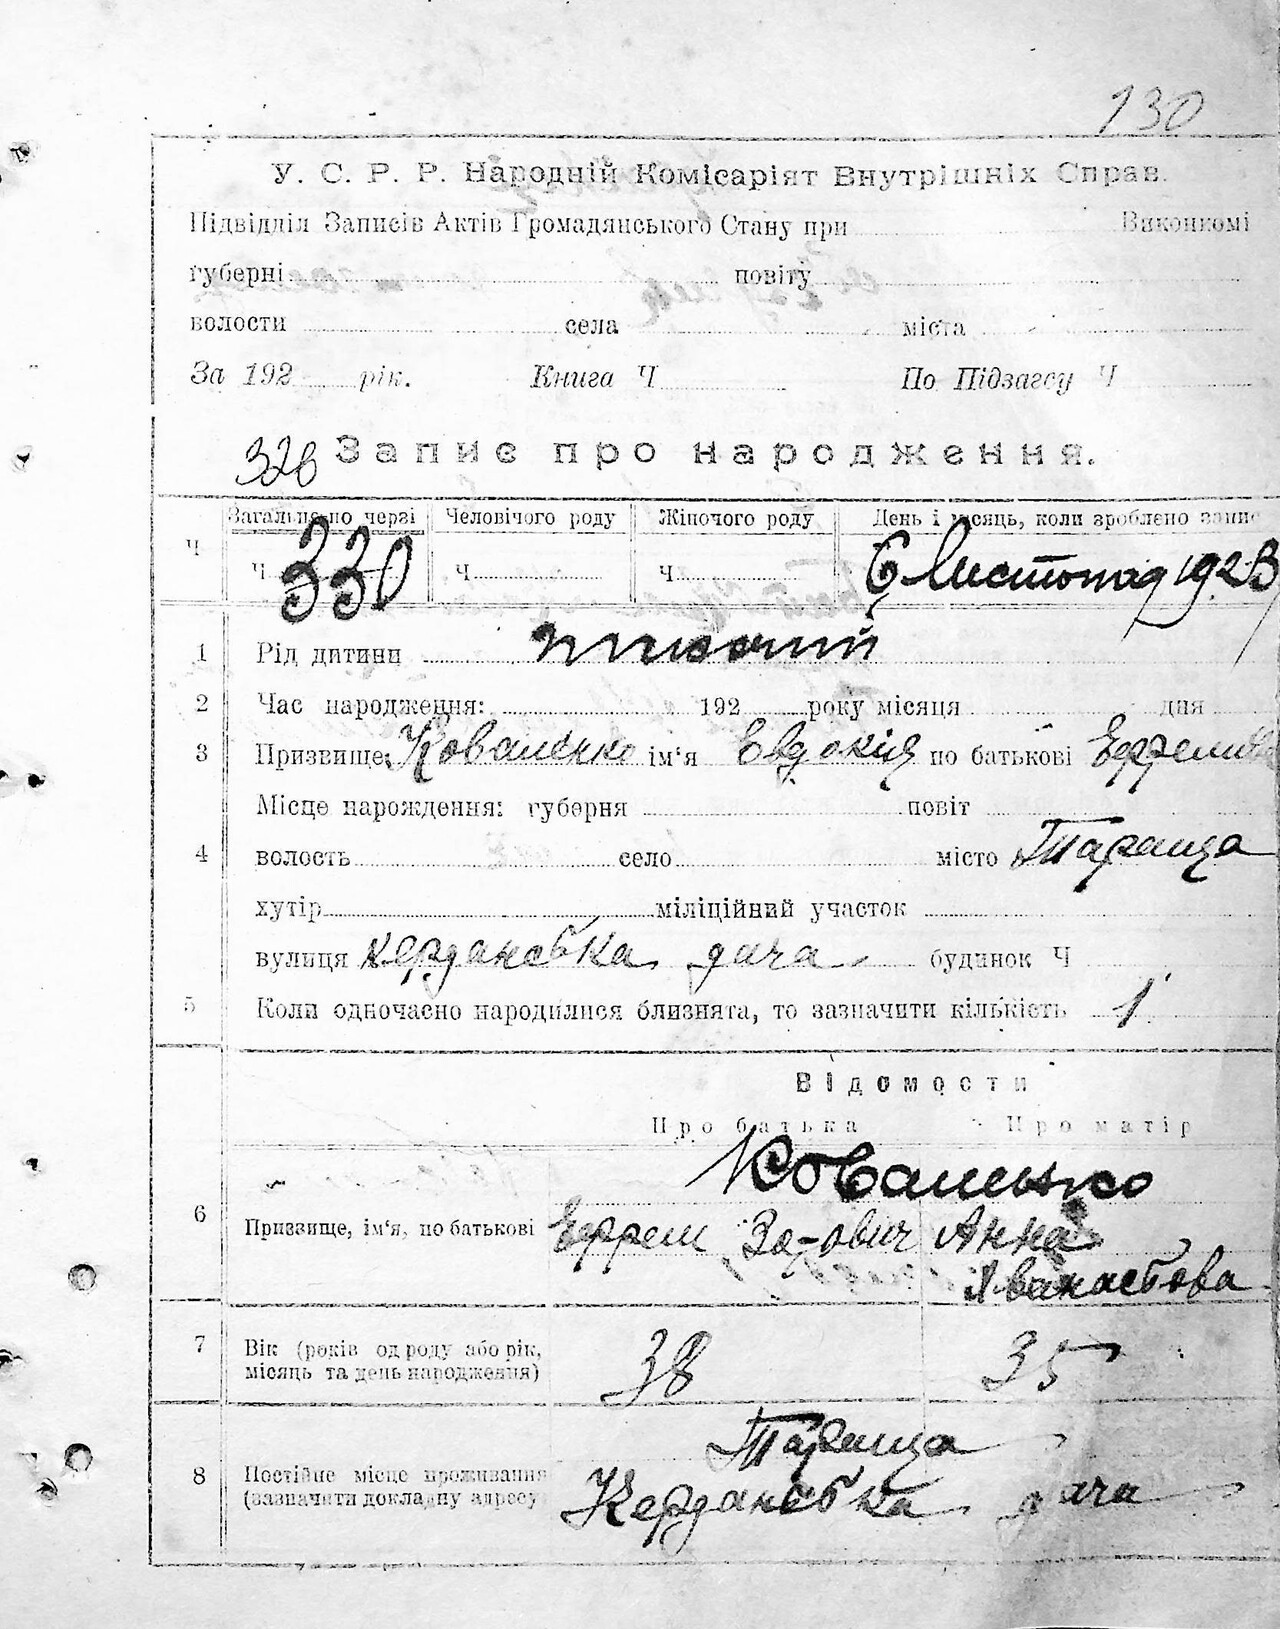 130
У. С. Р. Р. Народній Комісаріят Внутрішніх Справ.
Підвідділ Записів Актів Громадянського Стану при Виконкомі
губерні повіту
волости села міста
За 192 рік. Книга Ч По Підзагсу Ч
Запис про народження.
Загальне по черзі Человічого роду Жіночого роду День і місяць, коли зроблено запис
Ч Ч 330 Ч Ч 6 Листопад 1923
1 Рід дитини жиночий
2 Час народження: 192 року місяця дня
3 Призвище Коваленко ім'я Евдокія по батькові
Місце нарождення: губерня повіт
4 волость село место Тараща
хутір міліційний участок
вулиця Кердановка дача будинок Ч
5 Коли одночасно народилися близнята, то зазначити кількість 1
Відомости
Про батька Про матір
Коваленко
6 Призвище, ім'я, по батькові Ефрем Анна
7 Вік (років од роду або рік, місяць та день народження) 38 35
Тараща
8 Постійне місце проживання
(зазначити докладну адресу) Кердановка дача